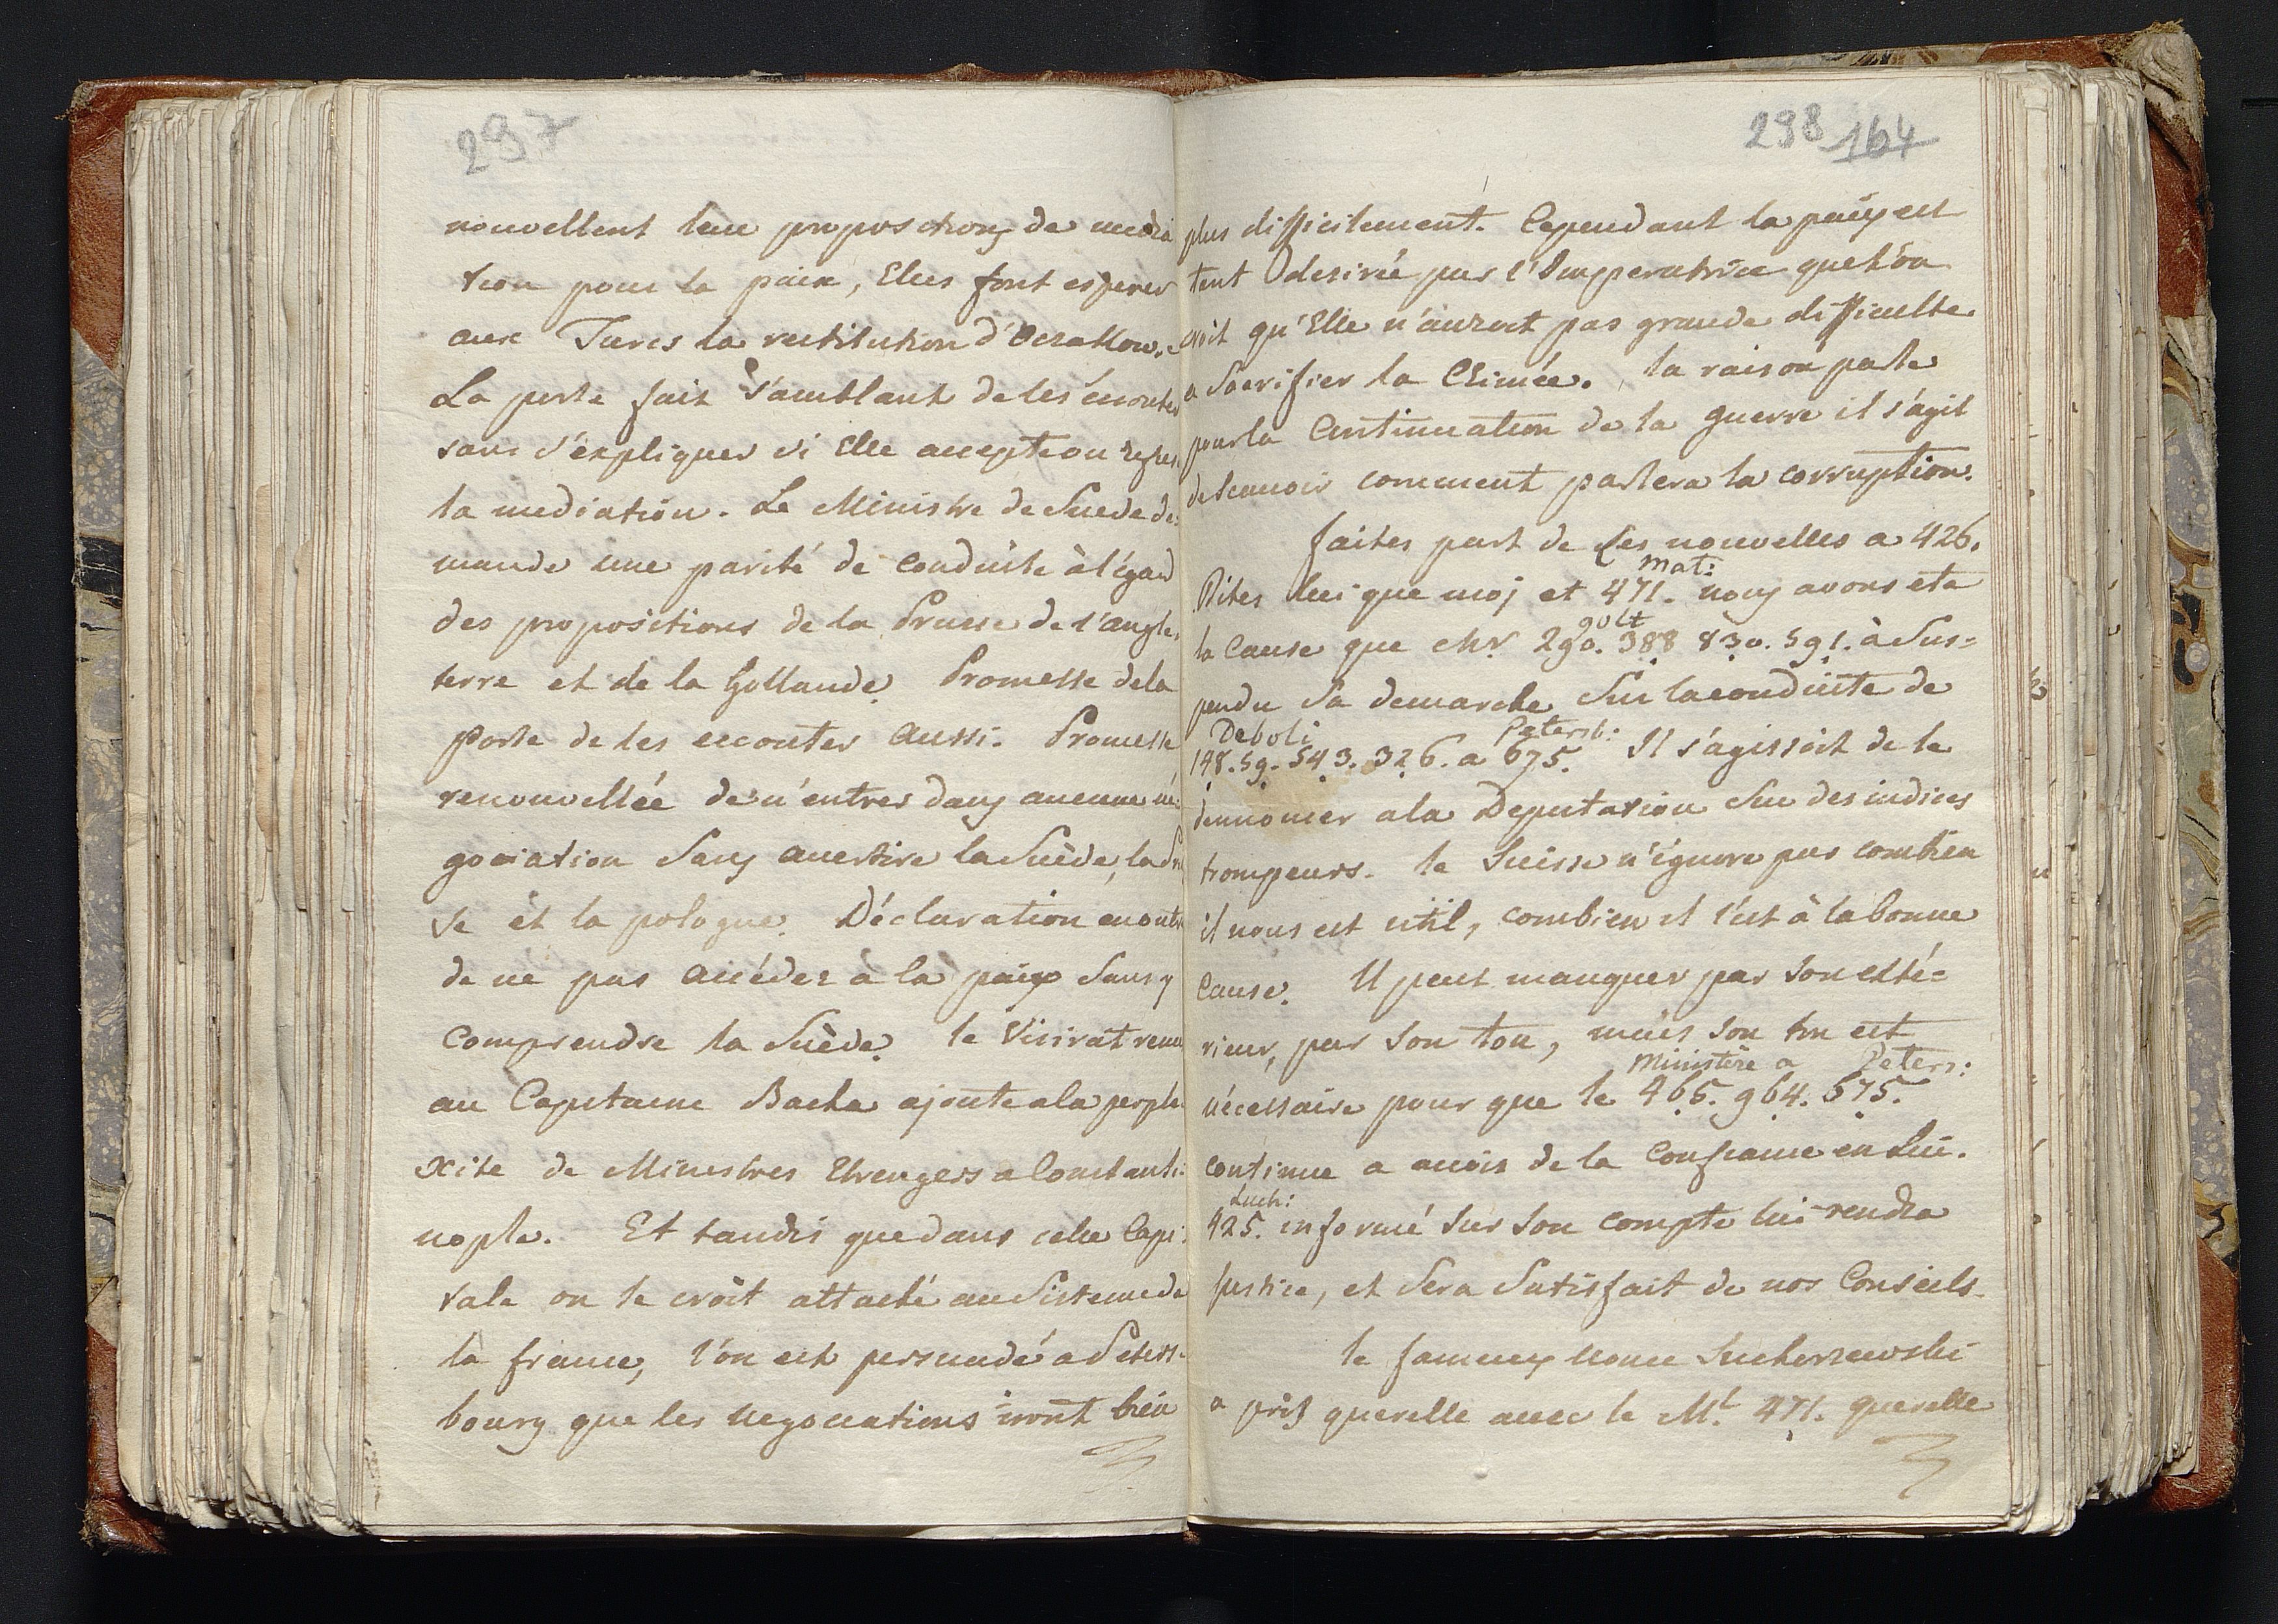 297
nouvellent leur propositions de media
tion pour la paix, Elles font esperer
aux Turcs la restitution d'Oczakow.
La porte fait s'amblant de les écouter
sans s'expliquer si Elle accepte ou refuse
la mediation. Le Ministre de Suede de:
mande une parité de conduite à légard
des propositions de la Prusse de l'angle,
terre et de la Hollande. Promesse dela
porte de les ecouter aussi. Promesse
renouvellée de n'entrer dans aucune né:
gociation sans avertire la Suède, la Prus
se et la pologne. Déclaration en outre
de ne pas accéder à la paix sans y
comprendre la Suède. le Visirat
au Capitaine Bacha ajoute a la perple:
xite de Ministres Etrengers a Constanti:
nople. Et tandis que dans cette Capi:
tale on le croit attaché au Sisteme de
la france, l'on est persuadé a Peters:
bourg que les negociations iront bien
298 164
plus difficilement. Cependant la paix est
tent desirée par l'Imperatrice que l'on
croit qu'Elle n'auroit pas grande difficulte
a Sacrifier la Crimée. la raison parle
pour la Continuation de la guerre il s'agit
de scavoir comment parlera la corruption.
faites part de ses nouvelles a 426.
Mat:
Dites lui que moj et 471. nous avons ete
golt
la cause que Mr 290. 388 830. 591. à Sus=
pendu sa demarche sur la conduite de
Deboli Petersb:
198. 59. 543. 326. a 675. Il s'agissoit de le
dennoncer a la Deputation sur des indices
trompeurs. le Suisse n'ignore pas combien
il nous est util, combien il l'est à la bonne
cause. Il peut manquer par son exté=
rieur, par son ton, mais son ton est
Ministère a Peters:
nécessaire pour que le 465. 964. 675.
continue a avoir de la Confiance en Lui.
Luch:
425. informé sur son compte lui rendra
justice, et sera Satisfait de nos Conseils.
le fameux nonce Suchorzewski
a pris querelle avec le Ml 471. querelle